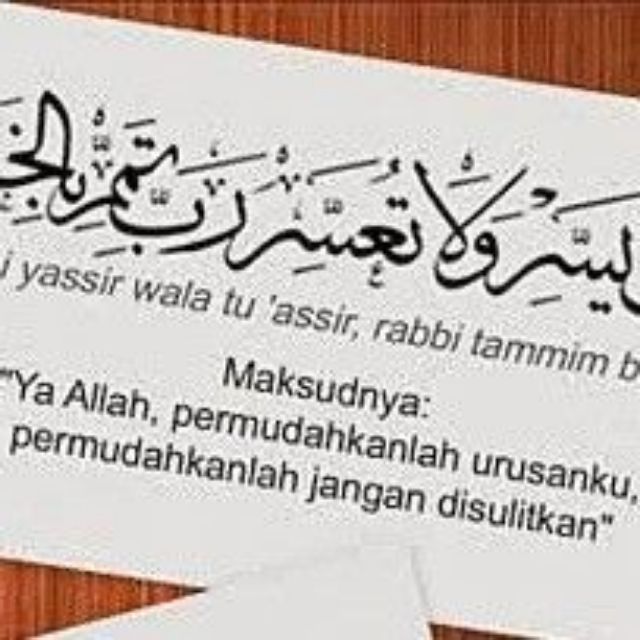 يَسِّرْ وَلَا تُعَسِّرْ رَبِّ تَمِّمْ
yassir wala tu 'assir, rabbi tammim
Maksudnya:
"Ya Allah, permudahkanlah urusanku,
permudahkanlah jangan disulitkan"